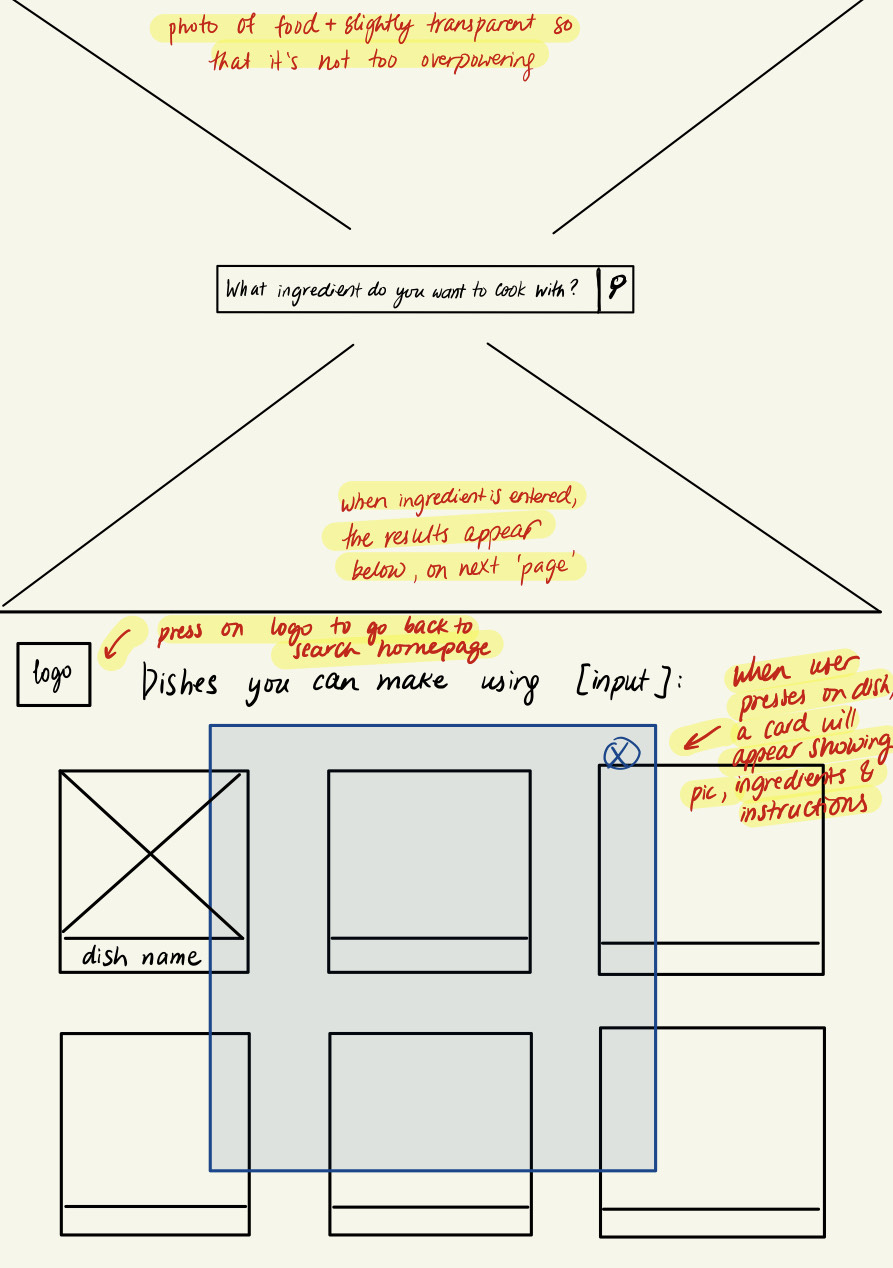 photo of food + slightly transparent so
that it's not too overpowering
What ingredient do you want to cook with?
when ingredient is entered,
the results appear
below, on next 'page'
press on logo to go back to
search homepage
logo
Dishes you can make using [input]:
when user
presses on dish,
a card will
appear showing
pic, ingredients &
instructions
X
dish name